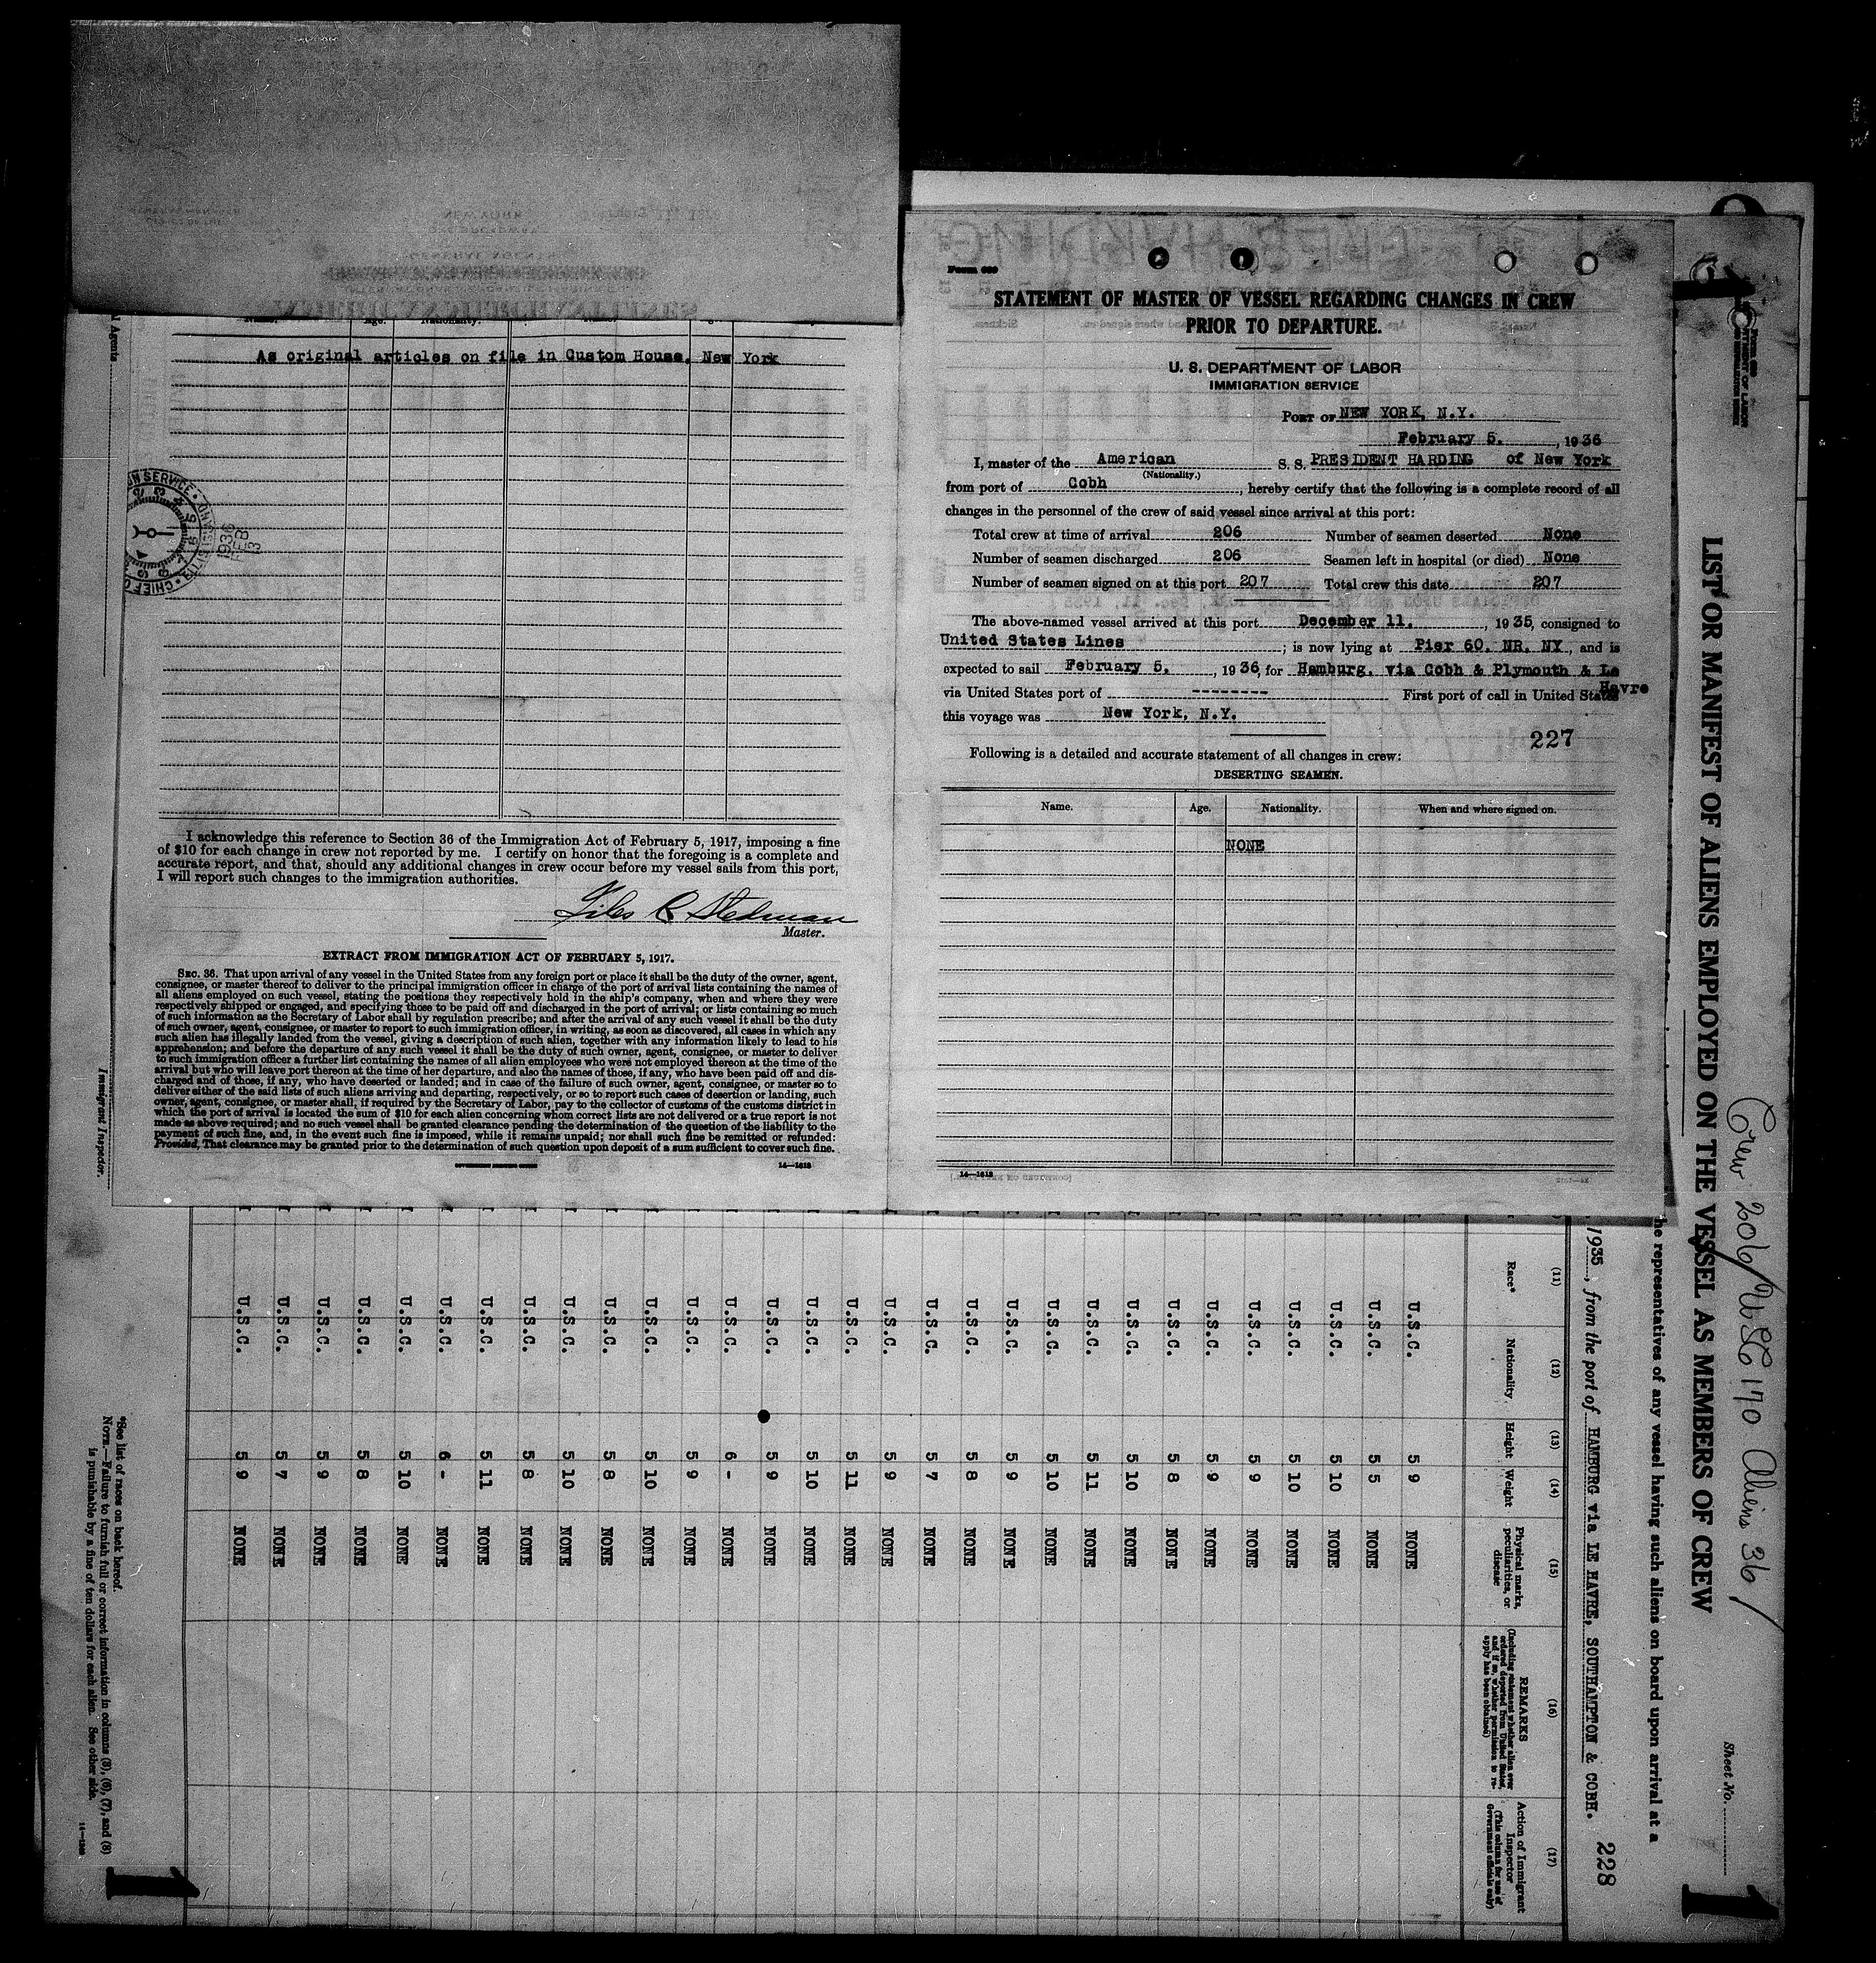 As original articles on file in Custom House, New York
I acknowledge this reference to Section 36 of the Immigration Act of February 5, 1917, imposing a fine
of $10 for each change in crew not reported by me. I certify on honor that the foregoing is a complete and
accurate report, and that, should any additional changes in crew occur before my vessel sails from this port,
I will report such changes to the immigration authorities.
Giles C Stedman
Master.
EXTRACT FROM IMMIGRATION ACT OF FEBRUARY 5, 1917.
SEC. 36. That upon arrival of any vessel in the United States from any foreign port or place it shall be the duty of the owner, agent,
consignee, or master thereof to deliver to the principal immigration officer in charge of the port of arrival lists containing the names of
all aliens employed on such vessel, stating the positions they respectively hold in the ship's company, when and where they were
respectively shipped or engaged, and specifying those to be paid off and discharged in the port of arrival; or lists containing so much
of such information as the Secretary of Labor shall by regulation prescribe; and after the arrival of any such vessel it shall be the duty
of such owner, agent, consignee, or master to report to such immigration officer, in writing, as soon as discovered, all cases in which any
such alien has illegally landed from the vessel, giving a description of such alien, together with any information likely to lead to his
apprehension; and before the departure of any such vessel it shall be the duty of such owner, agent, consignee, or master to deliver
to such immigration officer a further list containing the names of all alien employees who were not employed thereon at the time of the
arrival but who will leave port thereon at the time of her departure, and also the names of those, if any, who have been paid off and dis-
charged and of those, if any, who have deserted or landed; and in case of the failure of such owner, agent, consignee, or master so to
deliver either of the said lists of such aliens arriving and departing, respectively, or so to report such cases of desertion or landing, such
owner, agent, consignee, or master shall, if required by the Secretary of Labor, pay to the collector of customs of the customs district in
which the port of arrival is located the sum of $10 for each alien concerning whom correct lists are not delivered or a true report is not
made as above required; and no such vessel shall be granted clearance pending the determination of the question of the liability to the
payment of such fine, and, in the event such fine is imposed, while it remains unpaid; nor shall such fine be remitted or refunded:
Provided, That clearance may be granted prior to the determination of such question upon deposit of a sum sufficient to cover such fine.
14—1618
l Agents
Immigrant Inspector.
N SERVICE
1936
FEB
13
CHIEF
ELLIS ISLAND
Form 689
STATEMENT OF MASTER OF VESSEL REGARDING CHANGES IN CREW
PRIOR TO DEPARTURE.
U. S. DEPARTMENT OF LABOR
IMMIGRATION SERVICE
PORT OF NEW YORK, N.Y.
February 5, , 1936
I, master of the American S. S. PRESIDENT HARDING of New York
(Nationality.)
from port of Cobh , hereby certify that the following is a complete record of all
changes in the personnel of the crew of said vessel since arrival at this port:
Total crew at time of arrival 206 Number of seamen deserted None
Number of seamen discharged 206 Seamen left in hospital (or died) None
Number of seamen signed on at this port 207 Total crew this date 207
The above-named vessel arrived at this port December 11, , 1935, consigned to
United States Lines ; is now lying at Pier 60, NR, NY , and is
expected to sail February 5, , 1936, for Hamburg, via Cobh & Plymouth & Le
Havre
via United States port of -------- First port of call in United States
this voyage was New York, N.Y.
227
Following is a detailed and accurate statement of all changes in crew:
DESERTING SEAMEN.
Name. Age. Nationality. When and where signed on.
NONE
14—1618
Crew 206/ USC 170 Aliens 36/
Sheet No.
LIST OR MANIFEST OF ALIENS EMPLOYED ON THE VESSEL AS MEMBERS OF CREW
he representatives of any vessel having such aliens on board upon arrival at a
1935, from the port of HAMBURG via LE HAVRE, SOUTHAMPTON & COBH.
228
(11) (12) (13) (14) (15) (16) (17)
Race* Nationality Height Weight Physical marks, peculiarities, or disease REMARKS (Including statement whether alien ever ordered deported from United States, and if so, whether permission to reapply has been obtained) Action of Immigrant Inspector (This column for use of Government officials only)
U.S.C. U.S.C. 5 9 NONE
U.S.C. U.S.C. 5 5 NONE
U.S.C. U.S.C. 5 10 NONE
U.S.C. U.S.C. 5 10 NONE
U.S.C. U.S.C. 5 9 NONE
U.S.C. U.S.C. 5 9 NONE
U.S.C. U.S.C. 5 8 NONE
U.S.C. U.S.C. 5 10 NONE
U.S.C. U.S.C. 5 11 NONE
U.S.C. U.S.C. 5 10 NONE
U.S.C. U.S.C. 5 9 NONE
U.S.C. U.S.C. 5 8 NONE
U.S.C. U.S.C. 5 7 NONE
U.S.C. U.S.C. 5 9 NONE
U.S.C. U.S.C. 5 11 NONE
U.S.C. U.S.C. 5 10 NONE
U.S.C. U.S.C. 5 9 NONE
U.S.C. U.S.C. 6 - NONE
U.S.C. U.S.C. 5 9 NONE
U.S.C. U.S.C. 5 10 NONE
U.S.C. U.S.C. 5 8 NONE
U.S.C. U.S.C. 5 10 NONE
U.S.C. U.S.C. 5 8 NONE
U.S.C. U.S.C. 5 11 NONE
U.S.C. U.S.C. 6 - NONE
U.S.C. U.S.C. 5 10 NONE
U.S.C. U.S.C. 5 8 NONE
U.S.C. U.S.C. 5 9 NONE
U.S.C. U.S.C. 5 7 NONE
U.S.C. U.S.C. 5 9 NONE
*See list of races on back hereof.
NOTE.—Failure to furnish full or correct information in columns (3), (6), (7), and (8)
is punishable by a fine of ten dollars for each alien. See other side.
1
1